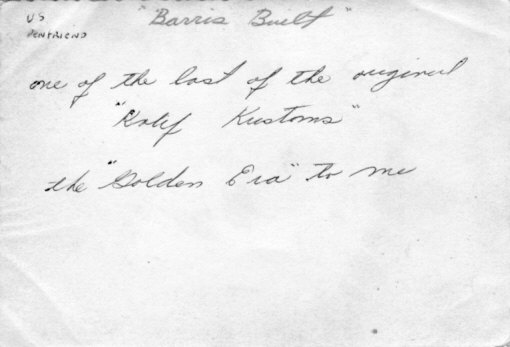 US
PENFRIEND
"Barris Built"
one of the last of the original
"Kalif Kustoms"
the "Golden Era" to me